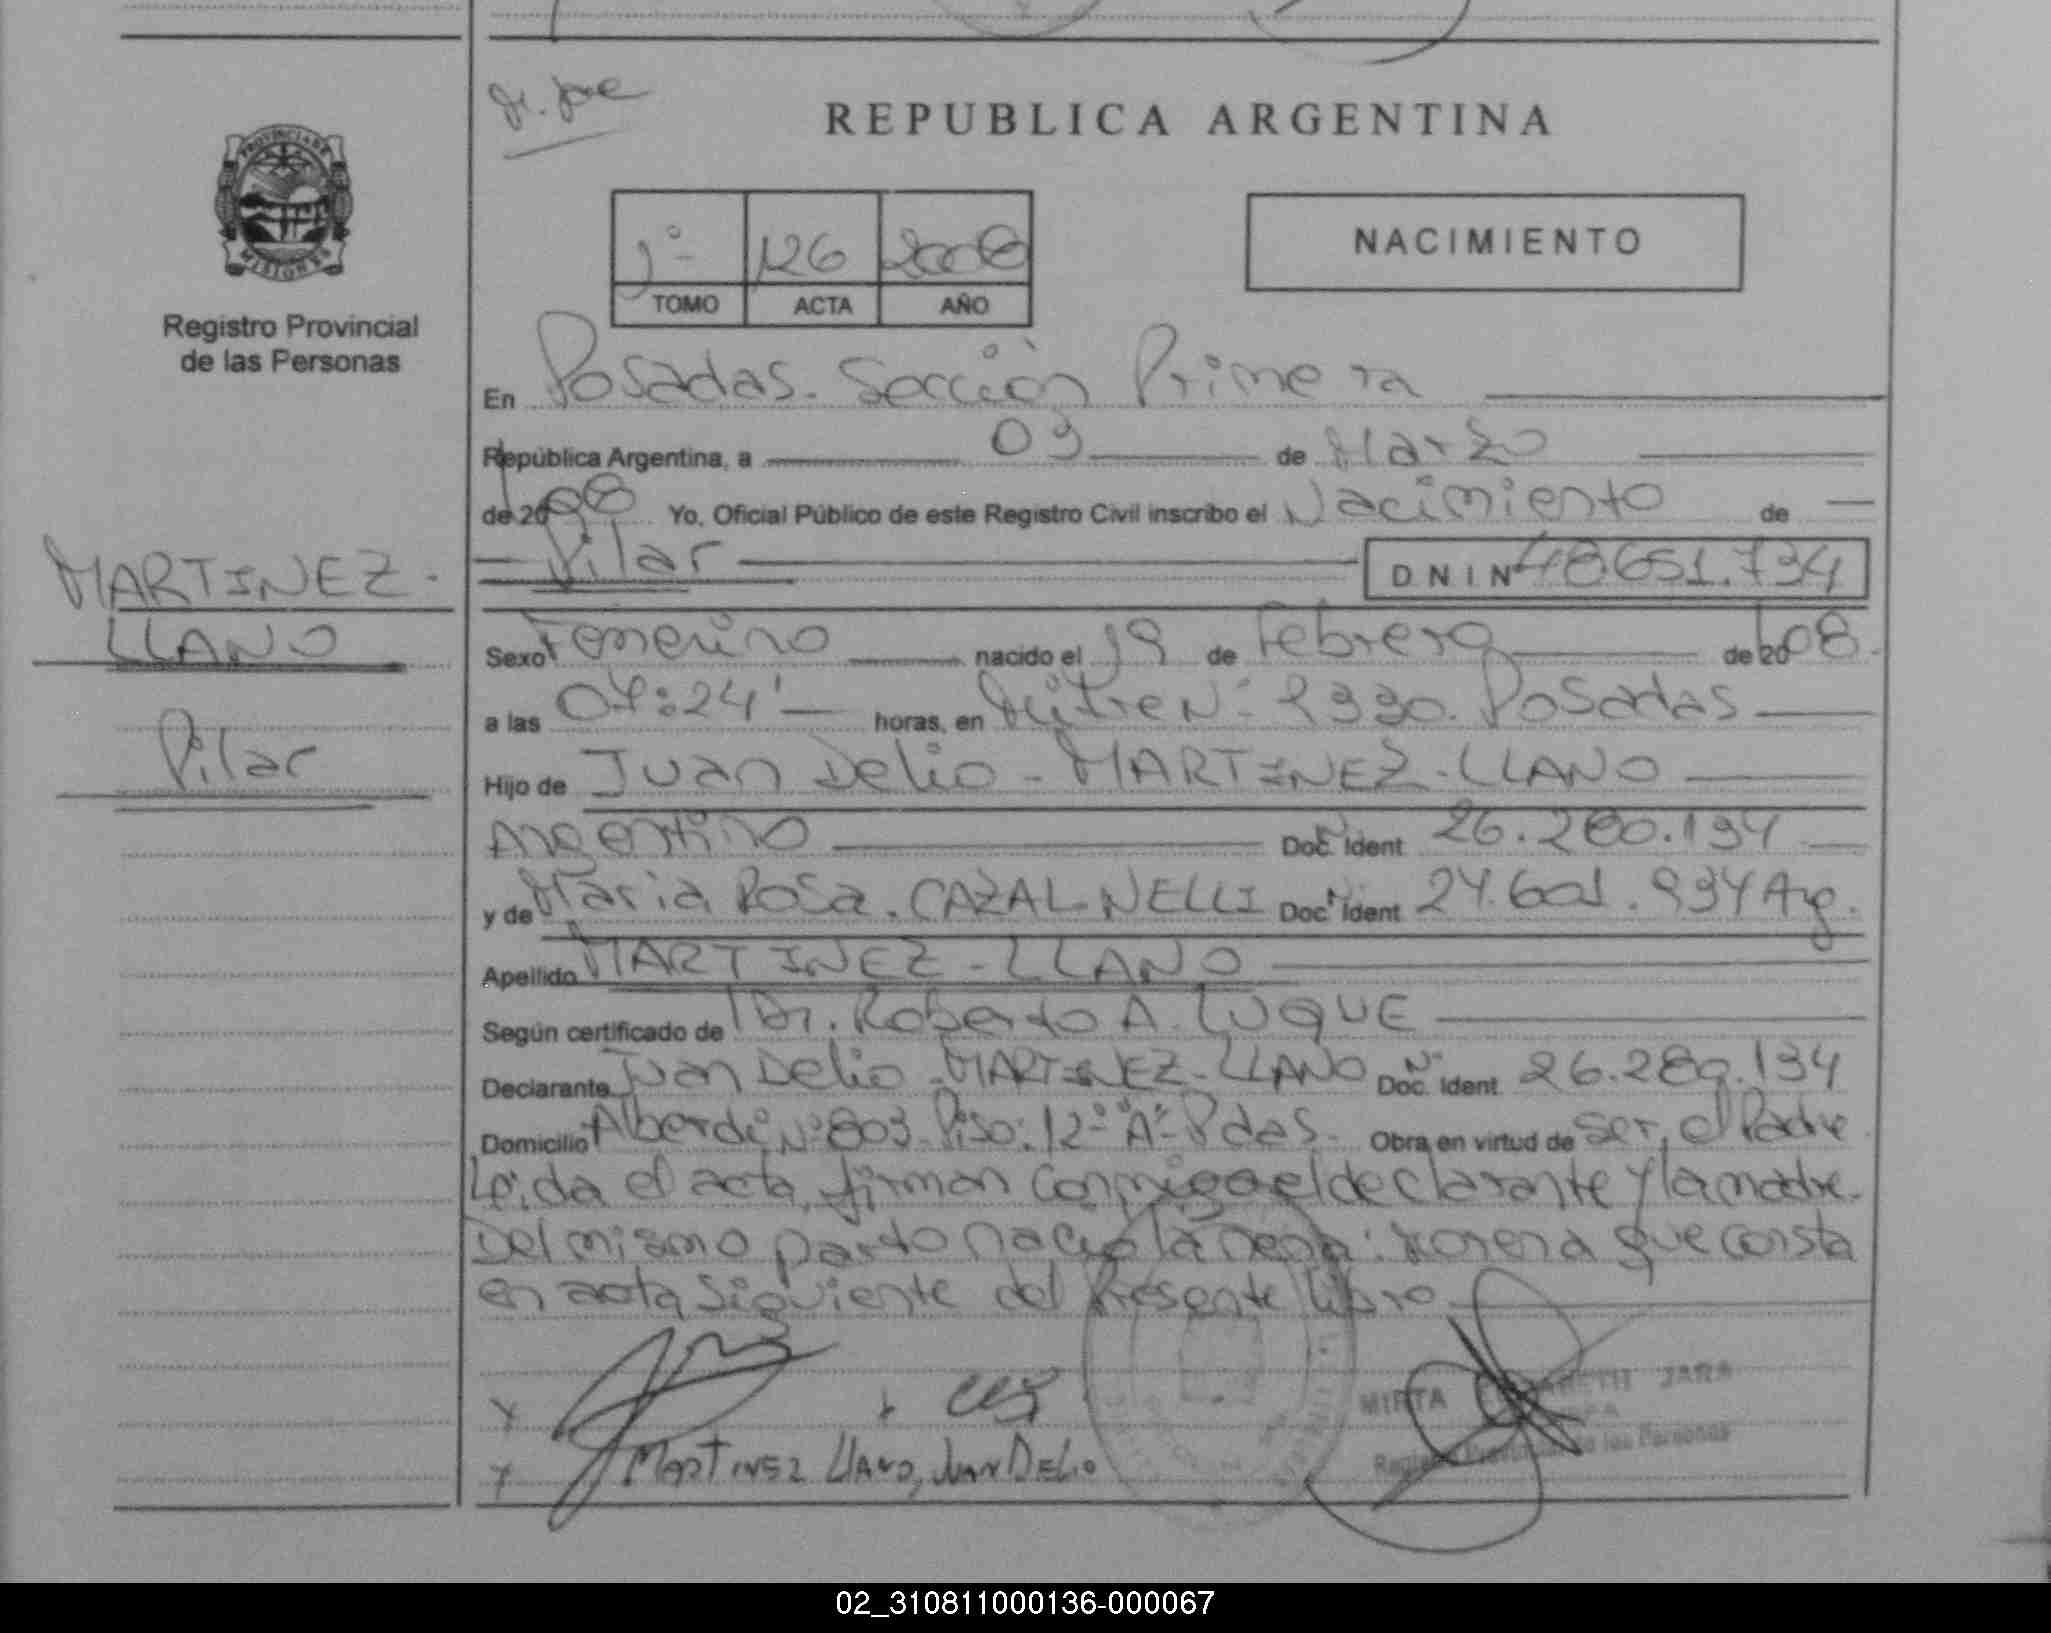 REPUBLICA ARGENTINA
PROVINCIA DE
MISIONES
1º 126 2008
TOMO ACTA AÑO
NACIMIENTO
Registro Provincial
de las Personas
En Posadas. Sección Primera
República Argentina, a 03 de Marzo
de 2008 Yo, Oficial Público de este Registro Civil inscribo el Nacimiento de
Pilar DNI Nº 48.651.734
MARTINEZ.
LLANO
Pilar
Sexo Femenino nacido el 19 de Febrero de 2008.
a las 07:24' horas, en Mitre Nº 2330. Posadas
Hijo de Juan Delio - MARTINEZ - LLANO
Argentino Doc. Ident 26.280.134
y de Maria Rosa. CAZAL-NELLI Doc. Ident 24.601.934 Arg.
Apellido MARTINEZ - LLANO
Según certificado de Dr. Roberto A. LUQUE
Declarante Juan Delio - MARTINEZ - LLANO Doc. Ident. 26.280.134
Domicilio Alberdi Nº 803. Piso: 12º "A" - Pdas. Obra en virtud de ser, el Padre
Leida el acta, firman conmigo el declarante y la madre.
Del mismo parto nació la nena: que consta
en acta siguiente del Presente libro
MARTINEZ LLANO, JUAN DELIO
MIRTA JARA
Registro Provincial de las Personas
02_310811000136-000067